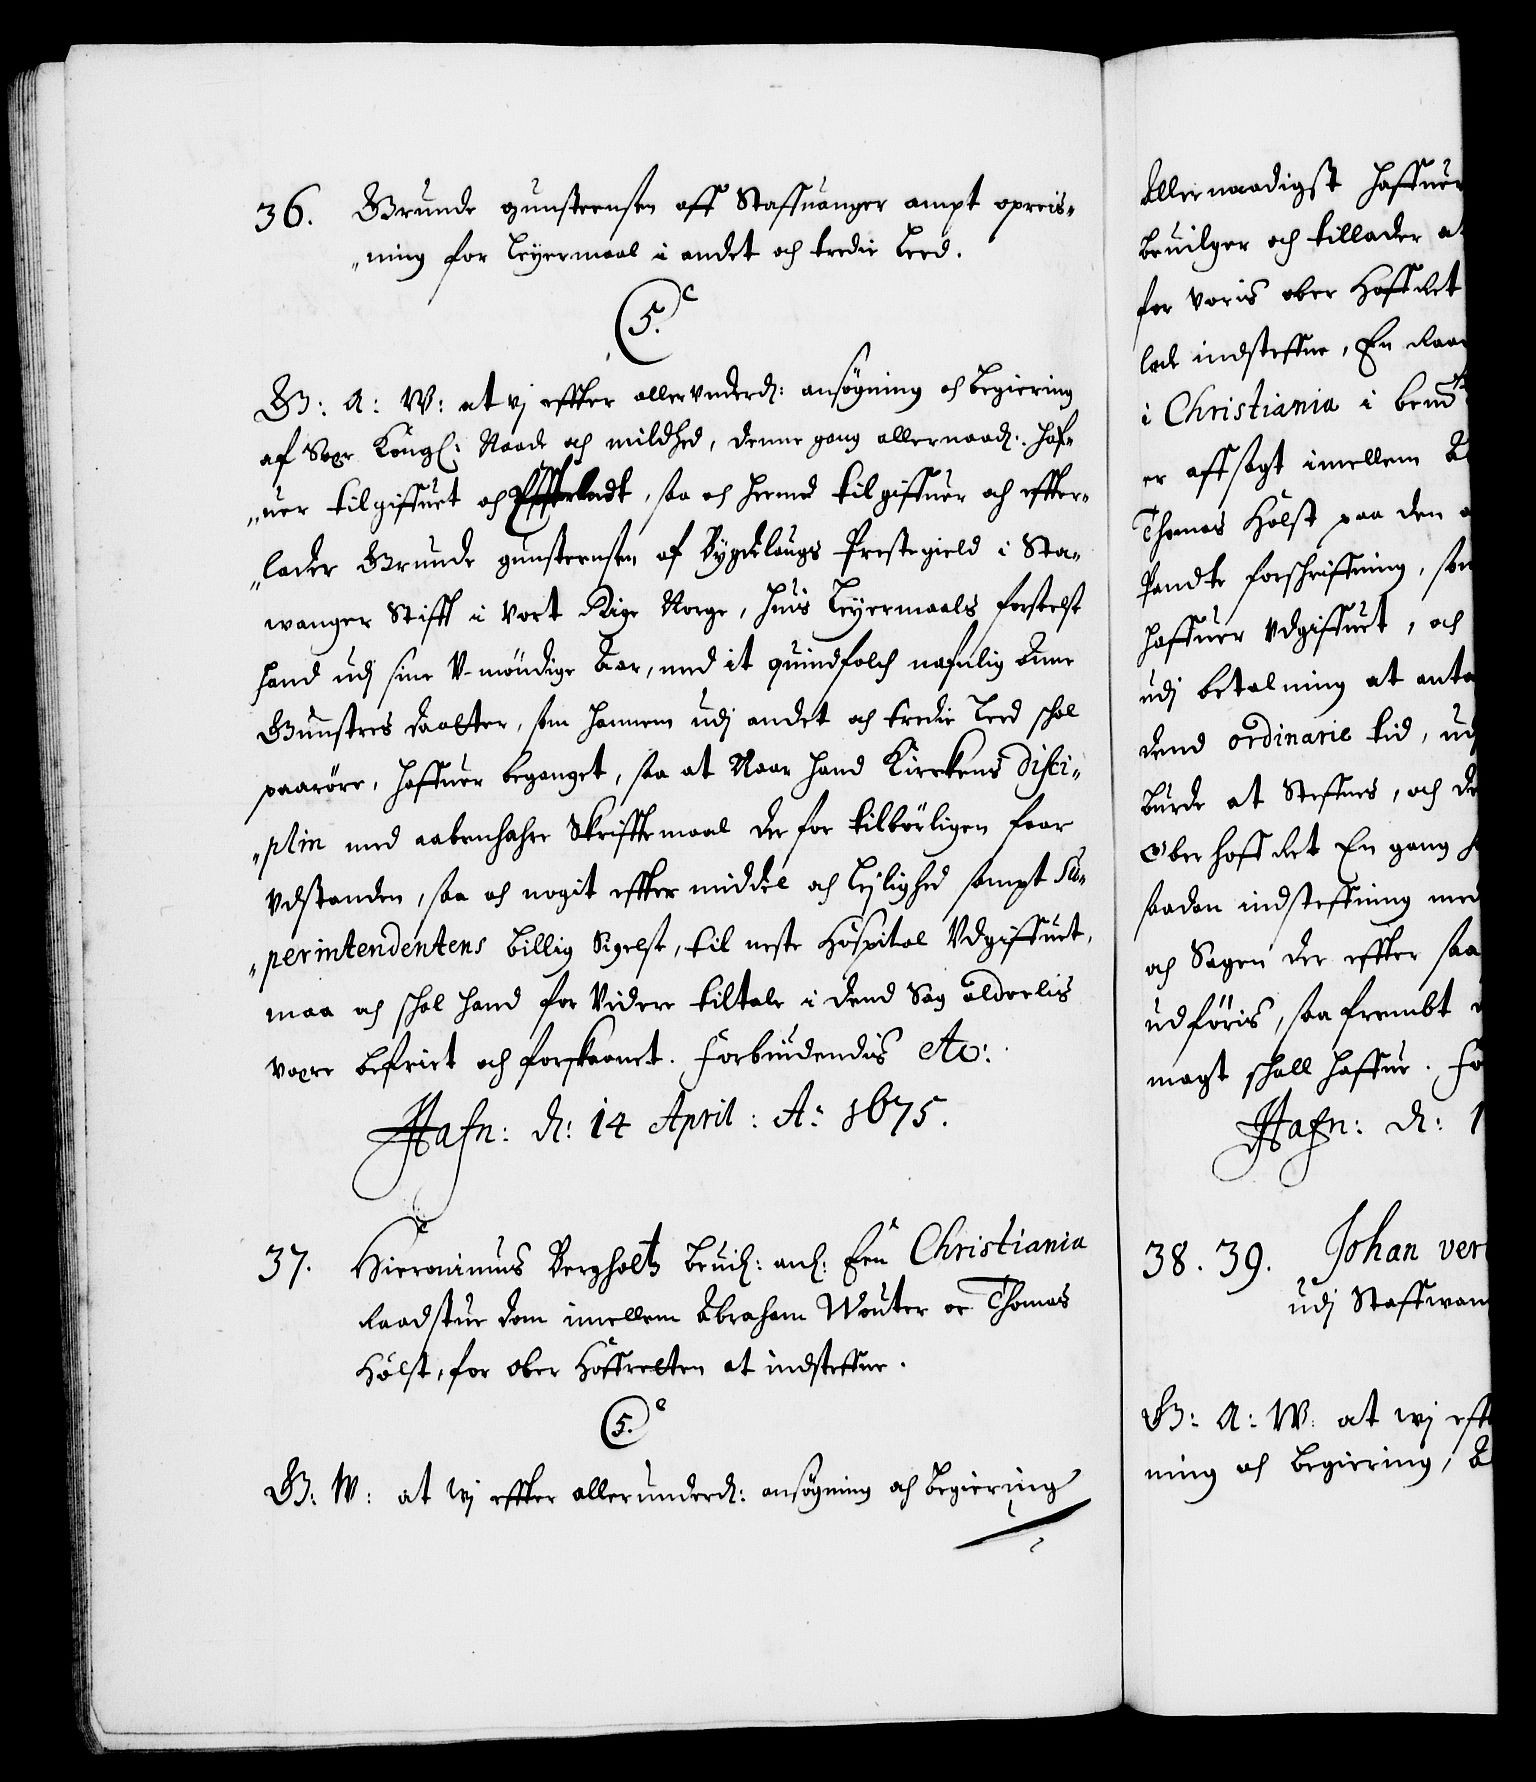 36. Grunde gunsteensen aff Staffuanger ampt opreis-
ning for Leyermaal i andet och tredie Leed.
C 5.
G: A: W: at vj effter allervnderd: ansøgning och begiering
af Sær Kongl: Naade och mildhed, denne gang allernaad: haf-
uer tilgiffuet och Effterladt, saa och hermed tilgiffuer och effter-
lader Grunde gunsteensen af Bygdelaugs Prestegield i Sta-
wanger Stifft i vort Rige Norge, huis Leyermaals forseelse
hand udj sine V-myndige Aar, med it quindfolch nafnlig Anne
Gunstres daatter, som hannem udj andet och tredie Leed schal
paarøre, haffuer beganget, saa at Naar hand Kirckens Disci-
plin med aabenbahre Skrifftemaal der for tilbørligen haar
vdstanden, saa och nogit effter middel och Lejlighed sampt Su-
perintendentens billig Sigelse, til neste Hospital Vdgiffuet,
maa och schal hand for Videre tiltale i dend Sag aldeelis
være befriet och forskaanet. Forbiudendis etc:
Hafn: d: 14 April: A: 1675.
37. Hieronimus Bergholtz bevilg: anl: Een Christiania
Raadstue dom imellem Abraham Wouter oc Thomas
Holst, for ober Hoffretten at indsteffne.
C 5.
G: W: at Wj effter allerunderd: ansøgning och begiering
Allernaadigst haffuer
beuilger och tillader at
for voris ober Hoffret
lade indsteffne, En Raad
i Christiania i bemte
er affsagt imellem A
Thomas Holst paa den
Pandte forschriffning, som
haffuer Vdgiffuet, och
udj betalning at anta
dend ordinarie tid, udj
burde at Steffnes, och de
Oberhoffret En gang
saadan indsteffning med
och Sagen der effter saa
udføris, saafrembt
magt schall haffue. Fo
Hafn: d: 1
38. 39. Johan ver
udj Staffwan
G: A: W: at wj efft
ning och begiering, A